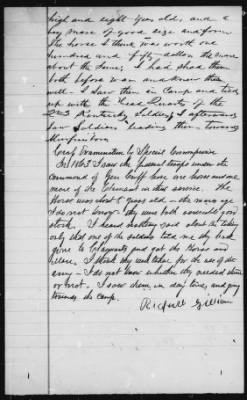 high and eight years old, and a
bay mare of good size and form
The horse I think was worth one
hundred and fifty dollars the mare
about the same. I had shod them
both before was and knew them
well. I saw them in Camp and tied
up with the Head Quarters of the
2nd Kentucky Soldiers. I afterwards
saw Soldiers leading them towards
Murfreesboro
Cross Examination by Special Commissioner
In 1863 I saw the federal troops under the
command of Gen have one horse and one
mare of the Claimant in this service. The
Horse was about 8 years old - the mare's age
I do not know - they were both good
stock. I heard nothing said about the taking
only that one of the soldiers told me they had
gone to Claymonts and got the Horse and
Mare. I think they were taken for the use of the
army - I do not know whether they needed them
or not. I saw them in day time, and going
towards the Camp.